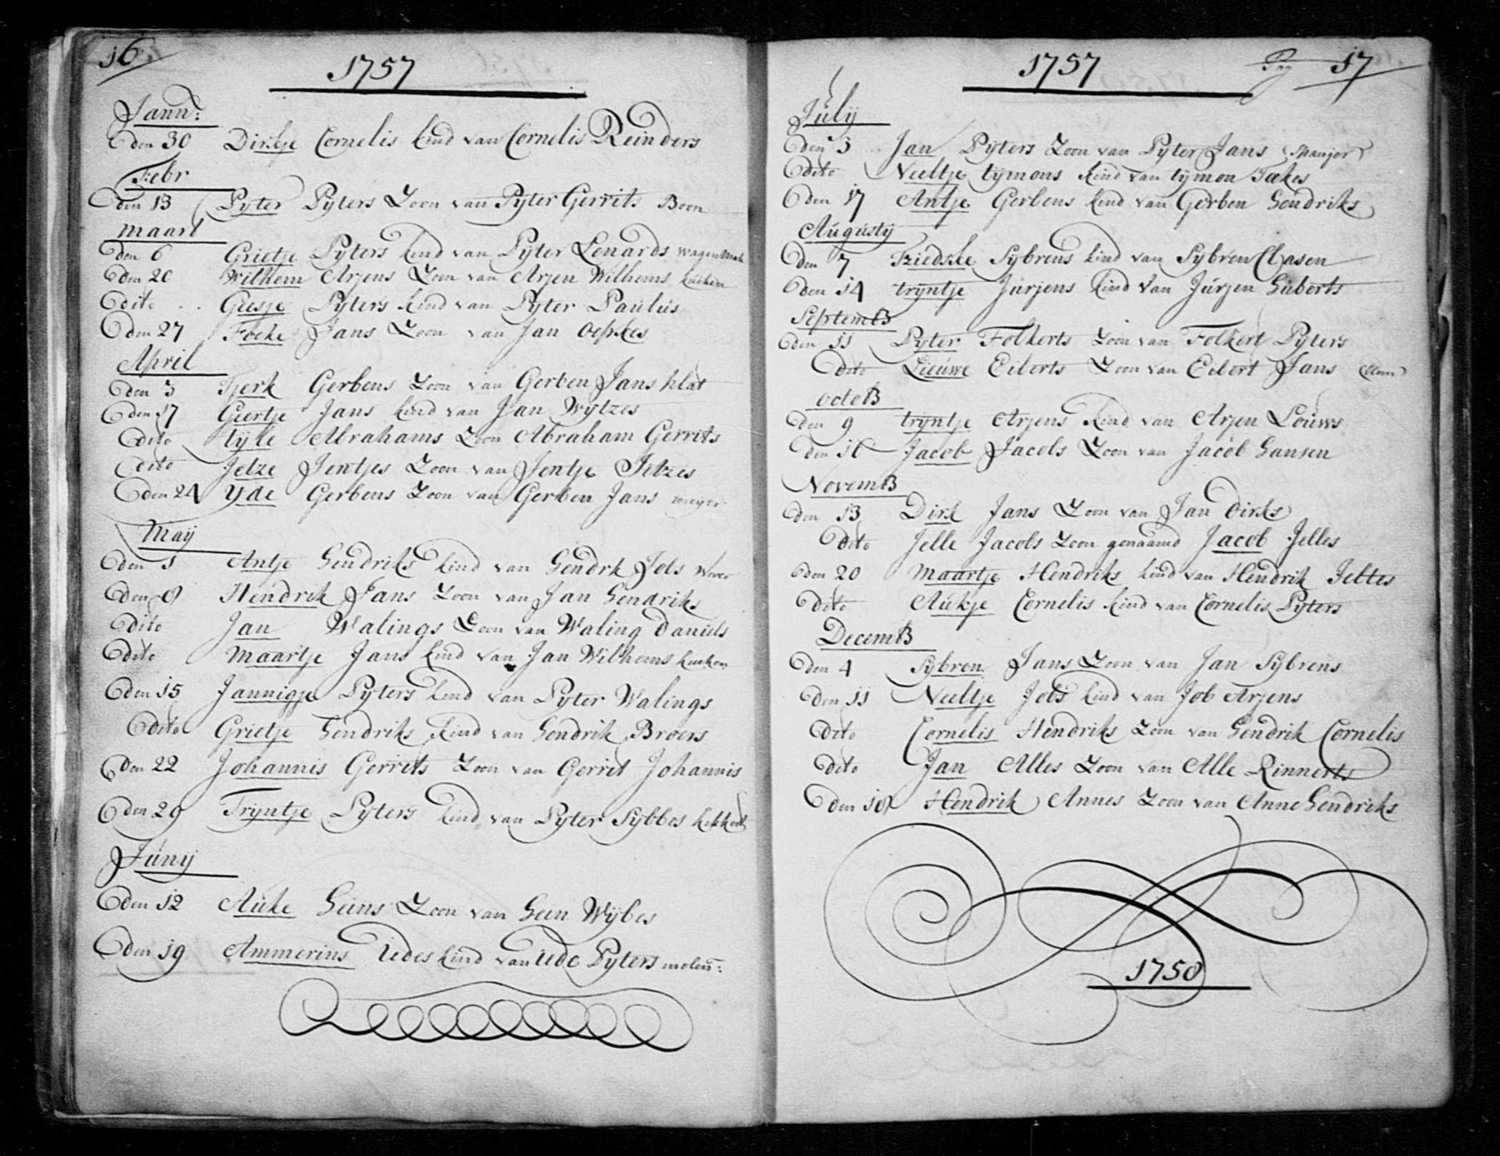 16
1757
Jann:
den 30 Dirkje Cornelis kind van Cornelis Reinders
Febr
den 13 Pyter Pyters Zoon van Pyter Gerrits Boon
Maart
den 6 Grietje Pyters kind van Pyter Lenards
den 20 Wilhem Arjens Zoon van Arjen Wilhems
dito Giesje Pyters kind van Pyter Paulus
den 27 Focke Jans Zoon van Jan oepkes
April
den 3 Tjerk Gerbens Zoon van Gerben Jans klat
den 17 Geertje Jans kind van Jan Wytzes
dito tyke Abrahams Zoon Abraham Gerrits
dito Jetze Jentjes Zoon van Jentje Jetzes
den 24 yde Gerbens Zoon van Gerben Jans meyer
May
den 1 Antje Hendriks kind van Hendrk Jots
den 8 Hendrik Jans Zoon van Jan Hendriks
dito Jan Walings Zoon van Waling Daniels
dito Maartje Jans kind van Jan Wilhems
den 15 Jannigje Pyters kind van Pyter Walings
dito Grietje Hendriks kind van Hendrik Broers
den 22 Johannis Gerrits Zoon van Gerrit Johannis
den 29 Tryntje Pyters kind van Pyter Sybbes
Juny
den 12 Auke Heins Zoon van Hein Wybes
den 19 Ammerins Uedes kind van Uede Pyters molen:
1757
17
July
den 3 Jan Pyters Zoon van Pyter Jans
dito Neeltje tymons kind van tymon Taekes
den 17 Antje Gerbens kind van Gerben Hendriks
Augusty
den 7 Friedske Sybrens kind van Sybren Clasen
den 14 tryntje Jurjens kind van Jurjen Huberts
SeptemB
den 11 Pyter Folkerts Zoon van Folkert Pyters
dito Lieuwe Eiberts Zoon van Eibert Jans
octoB
den 9 tryntje Arjens kind van Arjen Louws
den 16 Jacob Jacobs Zoon van Jacob Hansen
NovemB
den 13 Dirk Jans Zoon van Jan Dirks
dito Jelle Jacobs Zoon genaamd Jacob Jelles
den 20 Maartje Hendriks kind van Hendrik Jeltes
dito Aukje Cornelis kind van Cornelis Pyters
DecemB
den 4 Sybren Jans Zoon van Jan Sybrens
den 11 Neeltje Jobs kind van Job Arjens
dito Cornelis Hendriks Zoon van Hendrik Cornelis
dito Jan Alles Zoon van Alle Rinnerts
den 18 Hendrik Annes Zoon van Anne Hendriks
1758